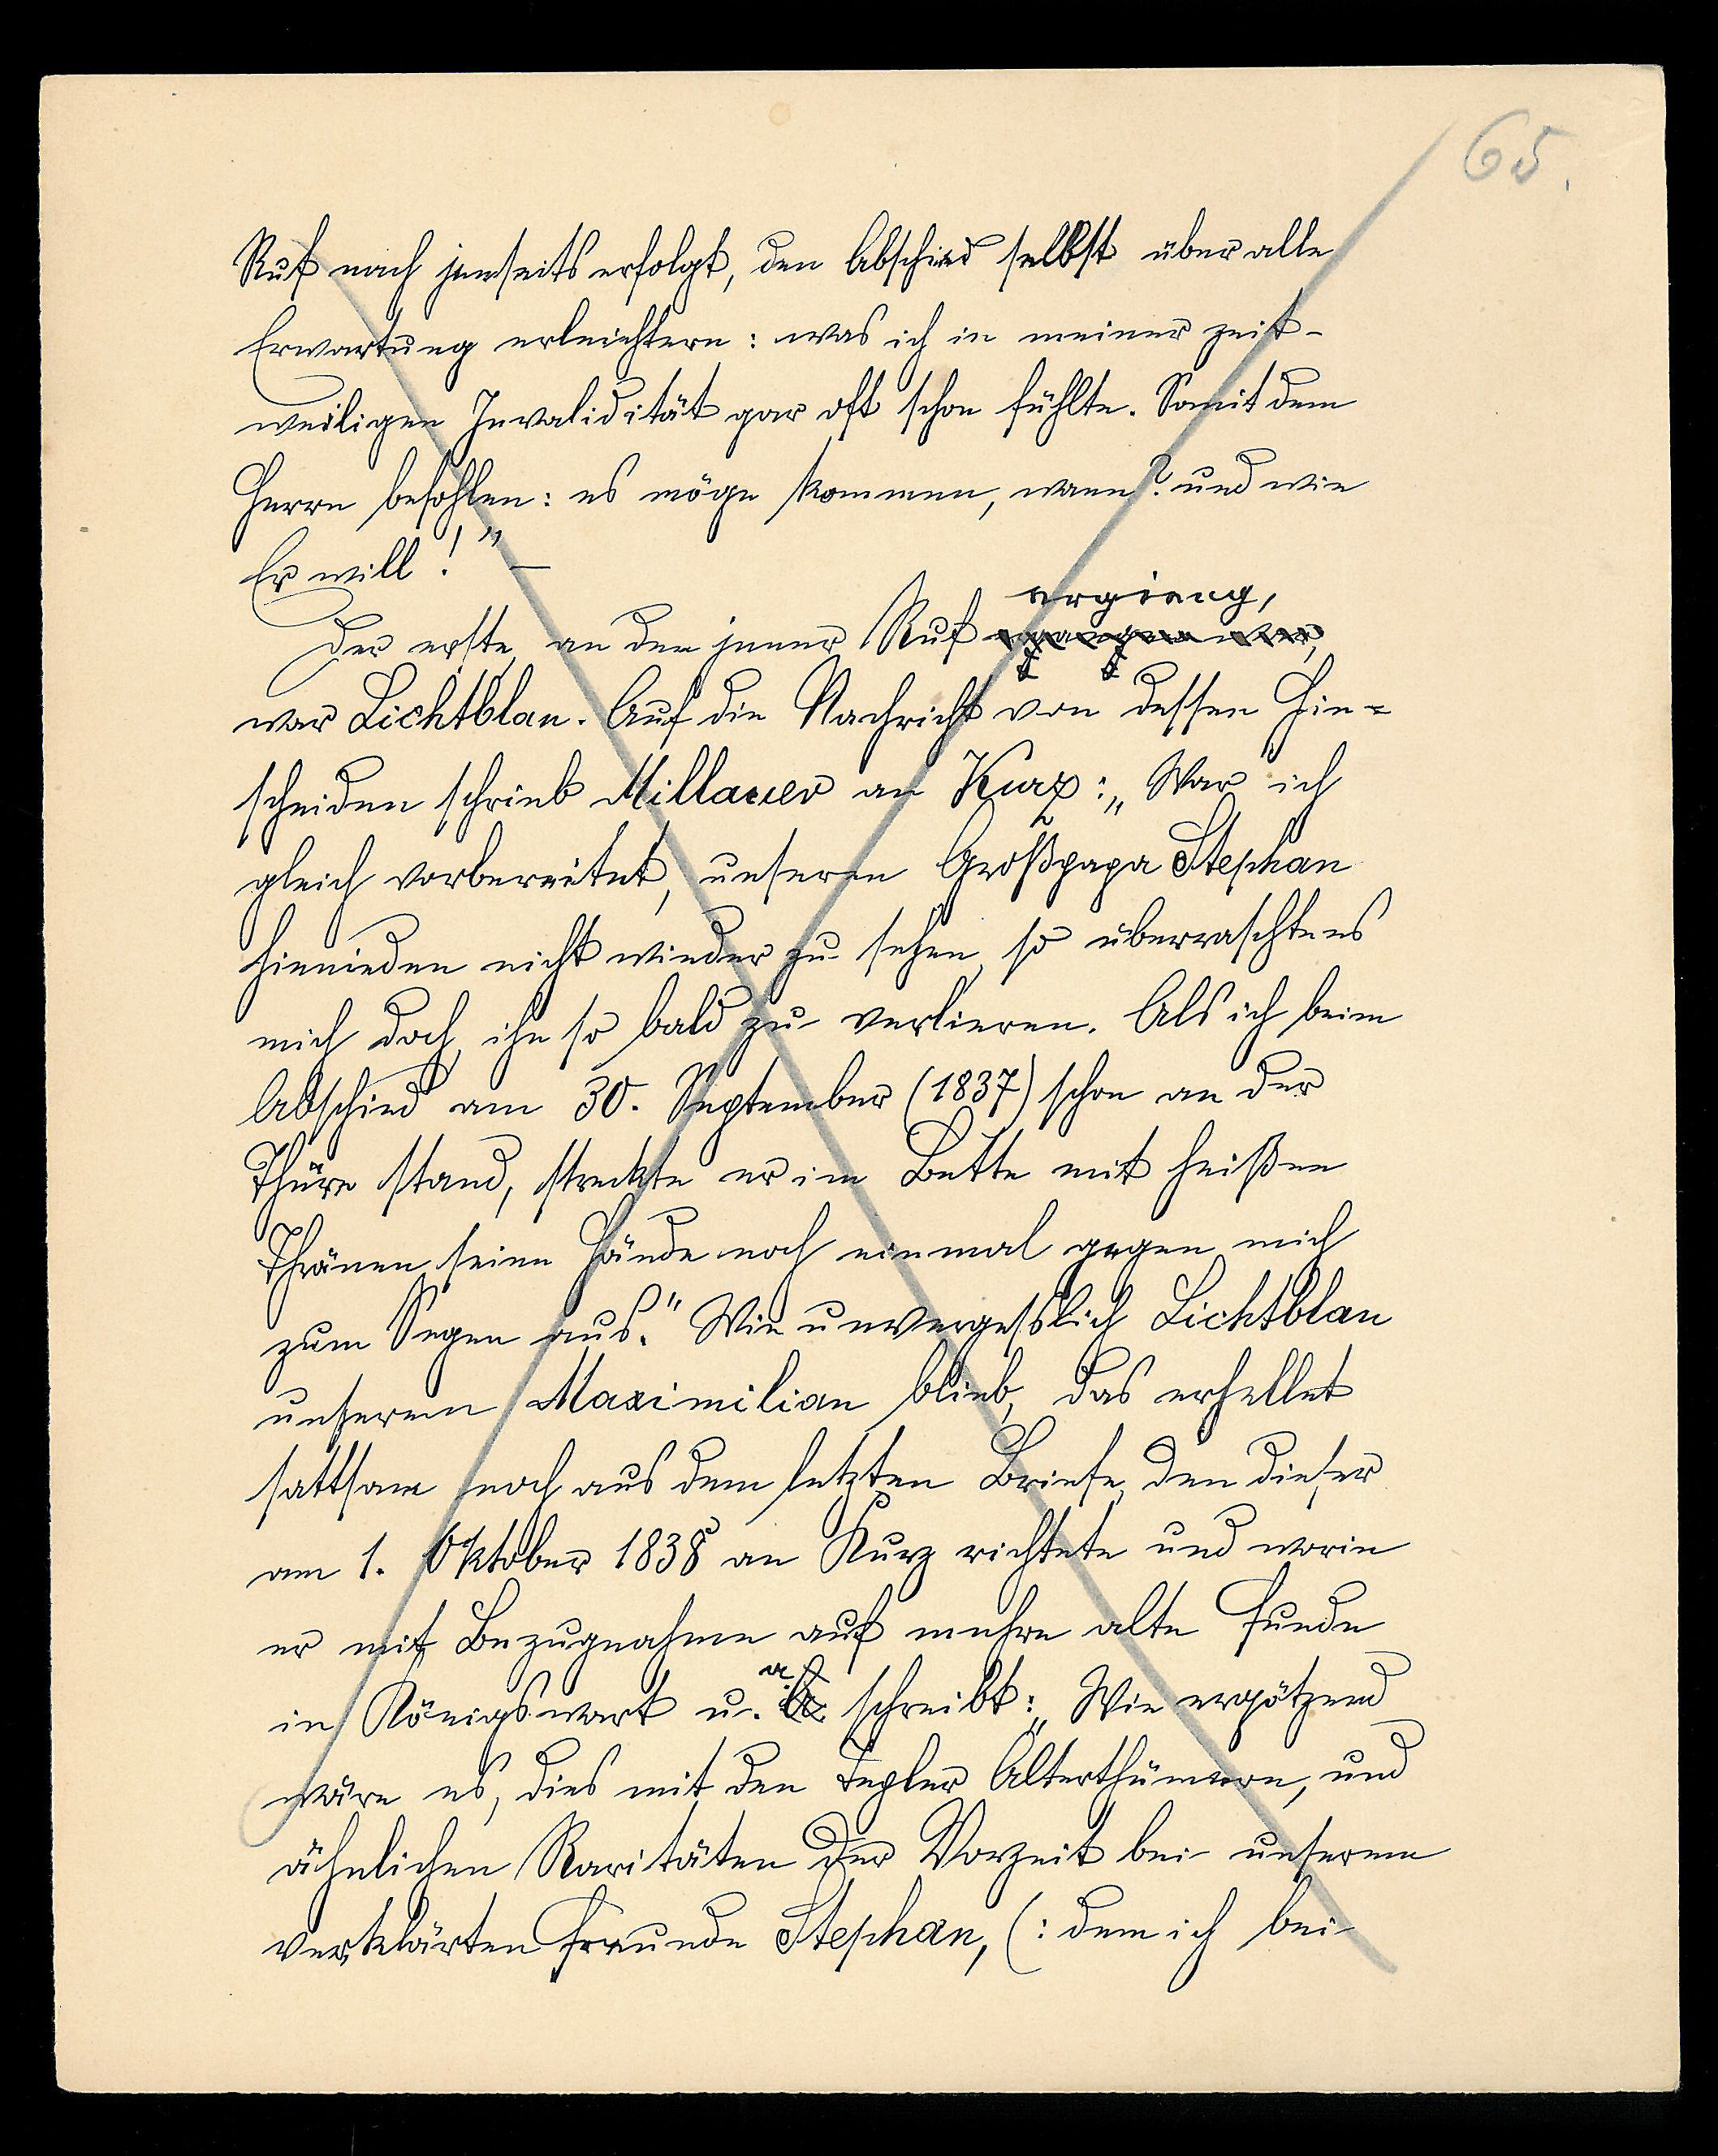 65.
Ruf nach jenseits erfolgt, den Abschied selbst über alle
Erwartung erleichtern: was ich in meiner zeit-
weiligen Invalidität gar oft schon fühlte. Somit dem
Herrn befohlen: es möge kommen, wann? und wie
Er will!" –
ergieng,
Der erste, an den jener Ruf ergangen war,
war Lichtblau. Auf die Nachricht von dessen Hin-
scheiden schrieb Millauer an Kurz: „War ich
gleich vorbereitet, unseren Großpapa Stephan
hienieden nicht wieder zu sehen, so überraschte es
mich doch, ihn so bald zu verlieren. Als ich beim
Abschied am 30. September (1837) schon an der
Thüre stand, streckte er im Bette mit heißen
Thränen seine Hände noch einmal gegen mich
zum Segen aus." Wie unvergesslich Lichtblau
unserem Maximilian blieb, das erhellet
sattsam noch aus dem letzten Briefe, den dieser
am 1. Oktober 1838 an Kurz richtete und worin
er mit Bezugnahme auf mehre alte Funde
in Königswart u. a. schreibt: „Wie ergötzend
wäre es, dies mit den Tepler Alterthümern, und
ähnlichen Raritäten der Vorzeit bei unserem
verklärten Freunde Stephan, (: dem ich bei